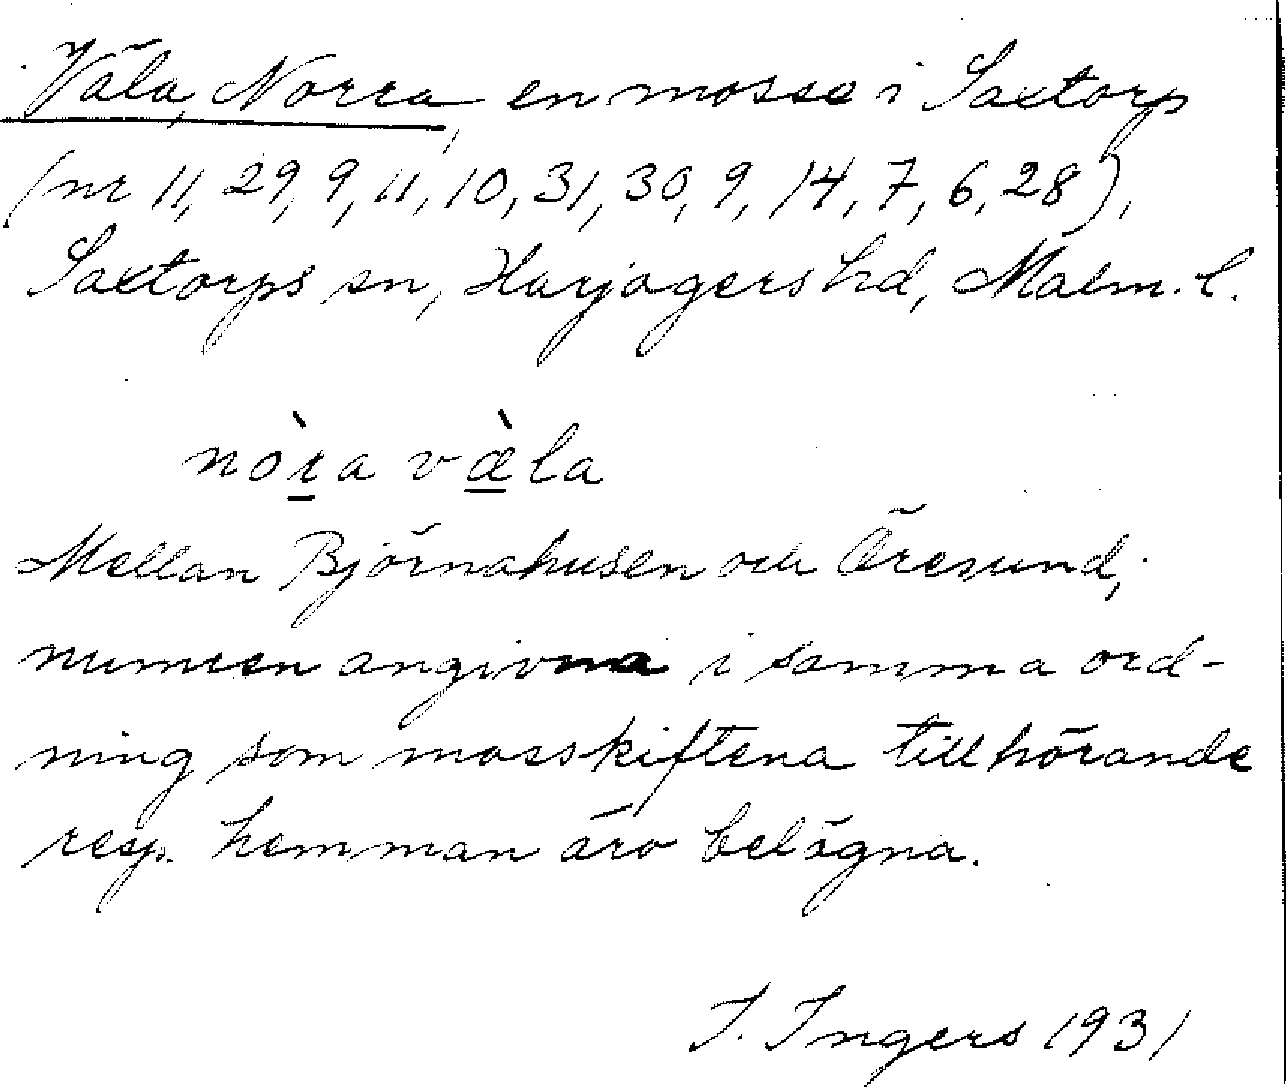 Väla, Norra, en mosse i Saxtorp
(nr 11, 29, 9, 11, 10, 31, 30, 9, 14, 7, 6, 28),
Saxtorps sn, Harjagers hd, Malm. l.
nòra væ̀la
Mellan Björnahusen och Öresund;
numren angivna i samma ord-
ning som mosskiftena tillhörande
resp. hemman äro belägna.
I. Ingers 1931